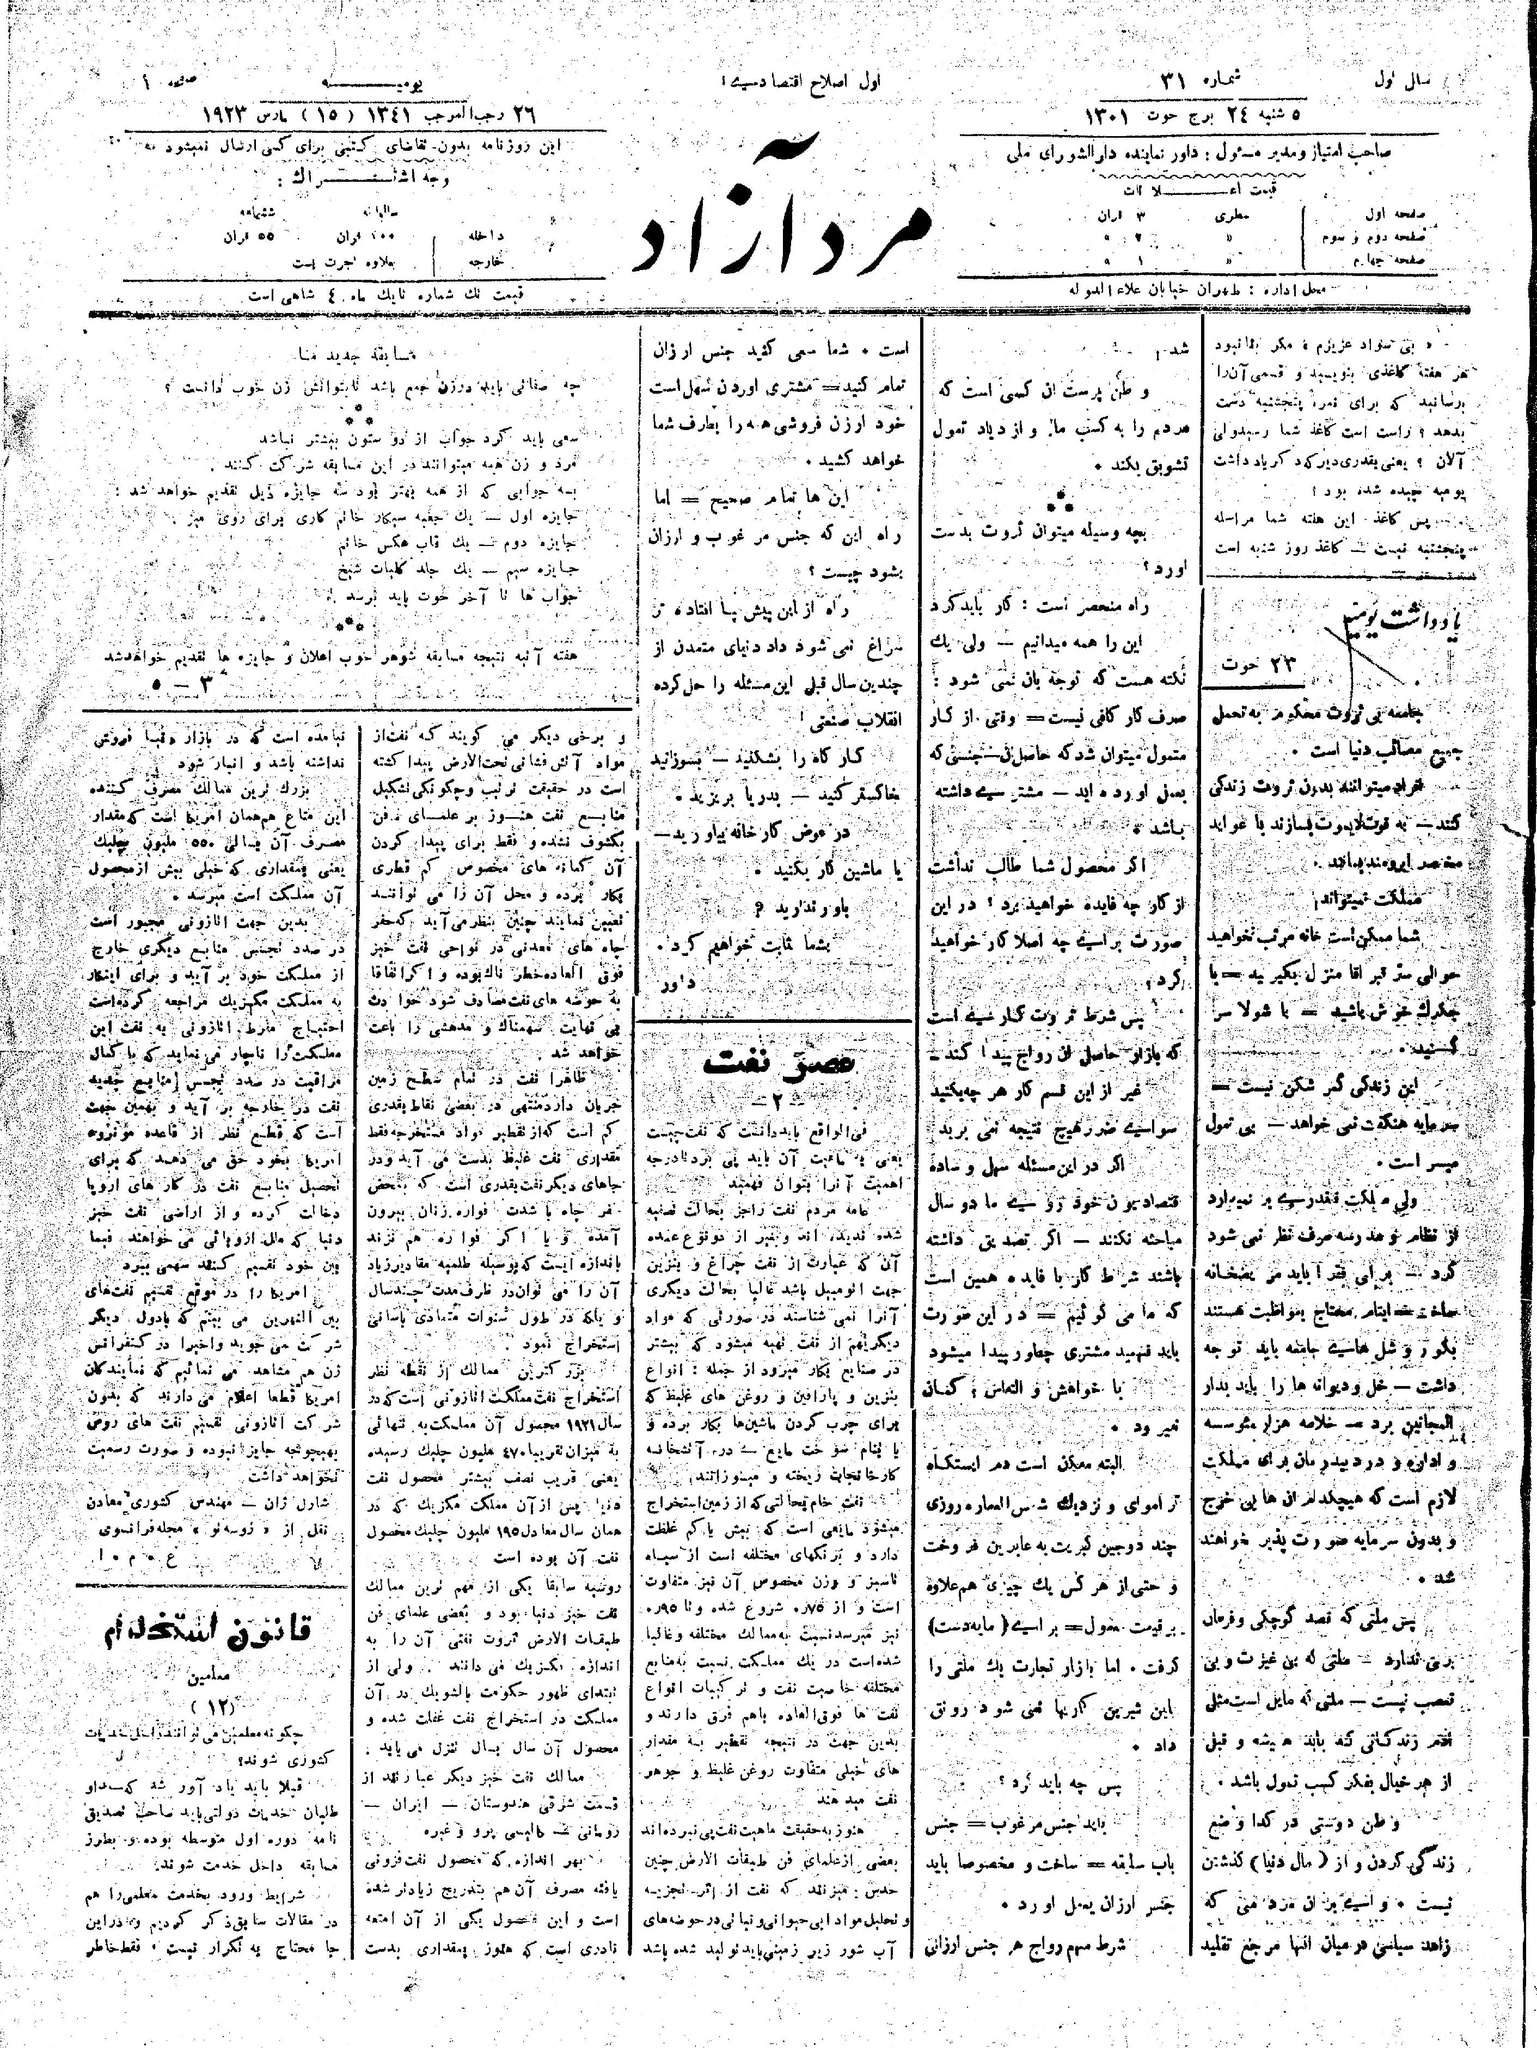 سال اول
شماره ۳۱
۵ شنبه ۲۴ برج حوت ۱۳۰۱
صاحب امتیاز و مدیر مسئول : داور نماینده دارالشورای ملی
قیمت اعلانات
صفحه اول سطری ۳ قران
صفحه دوم و سوم » ۲ »
صفحه چهارم » ۱ »
محل اداره : طهران خیابان علاءالدوله
اول اصلاح اقتصادی !
مرد آزاد
یومیه
صفحه ۱
۲۶ رجب المرجب ۱۳۴۱ (۱۵) مارس ۱۹۲۳
این روزنامه بدون تقاضای کتبی برای کسی ارسال نمیشود
وجه اشتراك :
سالیانه ششماهه
داخله ۱۰۰ قران ۵۵ قران
خارجه بعلاوه اجرت پست
قیمت تك شماره تا یك ماه ٤ شاهی است
« بی سواد عزیزم » مگر بنا نبود
هر هفته کاغذی بنویسید و قسمی آن را
برسانید که برای نمره پنجشنبه دست
بدهد ؟ راست است کاغذ شما رسید ولی
آلان ؟ یعنی بقدری دیر که دگر یاد داشت
یومیه چیده شده بود !
پس کاغذ این هفته شما مراسله
پنجشنبه نیست — کاغذ روز شنبه است
یادداشت یومیه
۲۳ حوت
جامعه بی ثروت محکوم به تحمل
جمیع مصائب دنیا است .
افراد میتوانند بدون ثروت زندگی
کنند — به قوت لایموت بسازند با عواید
مختصر ابرومند بمانند .
مملکت نمیتواند !
شما ممکن است خانه مرتب نخواهید
حوالی سر قبر اقا منزل بگیرید — با
جگرك خوش باشید — با شولا سر
کنید .
این زندگی کمر شکن نیست —
سرمایه هنگفت نمی خواهد — بی تمول
میسر است .
ولی مملکت قنقدرسی بر نمیدارد
از نظام نو مدرسه صرف نظر نمی شود
کرد — برای فقرا باید مریضخانه
ساخت — ایتام محتاج بمواظبت هستند
بکور و شل های جامعه باید توجه
داشت — خل و دیوانه ها را باید بدار
المجانین برد — خلاصه هزار مؤسسه
و اداره و درد بیدرمان برای مملکت
لازم است که هیچکدام ان ها بی خرج
و بدون سرمایه صورت پذیر نخواهند
شد .
پس ملتی که قصد کوچکی و فرمان
بری ندارد — ملتی که بی غیرت و بی
تعصب نیست — ملتی که مایل است مثل
ادم زندگانی کند باید همیشه و قبل
از هر خیال بفکر کسب تمول باشد .
وطن دوستی در گدا وضع
زندگی کردن و از ( مال دنیا ) گذشتن
نیست . وای بران مردمی که
زاهد سیاسی در میان انها مرجع تقلید
شد .
وطن پرست ان کسی است که
مردم را به کسب مال و ازدیاد تمول
تشویق بکند .
بچه وسیله میتوان ثروت بدست
اورد ؟
راه منحصر است : کار باید کرد
این را همه میدانیم — ولی یك
نکته هست که توجه بان نمی شود :
صرف کار کافی نیست — وقتی از کار
متمول میتوان شد که حاصل ان — جنسی که
بعمل اورده اید — مشتری داشته
باشد .
اگر محصول شما طالب نداشت
از کار چه فایده خواهید برد ؟ در این
صورت برای چه اصلا کار خواهید
کرد ؟
پس شرط ثروت کاری است
که بازار حاصل ان رواج پیدا کند —
غیر از این قسم کار هر چه بکنید
سوای ضرر هیچ نتیجه نمی برید
اگر در این مسئله سهل و ساده
اقتصادیون خودروی ما دو سال
مباحثه نکنند — اگر تصدیق داشته
باشند شرط کار با فایده همین است
که ما می گوئیم — در این صورت
باید فهمید مشتری چطور پیدا میشود
با خواهش و التماس ؟ گمان
نمیرود .
البته ممکن است دم ایستگاه
تراموای و نزدیك شمس العماره روزی
چند دوجین کبریت به عابرین فروخت
و حتی از هر کس یك چیزی هم علاوه
بر قیمت معمول — برای ( مایه دست )
گرفت . اما بازار تجارت یك ملتی را
باین شیرین کاریها نمی شود رونق
داد .
پس چه باید کرد ؟
باید جنس مرغوب — جنس
باب سلیقه — ساخت و مخصوصا باید
جنس ارزان بعمل اورد .
شرط مهم رواج هر جنس ارزانی
است . شما سعی کنید جنس ارزان
تمام کنید — مشتری اوردن سهل است
خود ارزن فروشی همه را بطرف شما
خواهد کشید .
این ها تمام صحیح — اما
راه این که جنس مرغوب و ارزان
بشود چیست ؟
راه از این پیش پا افتاده تر
سراغ نمی شود داد دنیای متمدن از
چندین سال قبل این مسئله را حل کرده
انقلاب صنعتی !
کار گاه را بشکنید — بسوزانید
خاکستر کنید — بدریا بریزید .
در عوض کارخانه بیاورید —
با ماشین کار بکنید .
باور ندارید ؟
بشما ثابت خواهیم کرد .
داور
عصر نفت
— ۲ —
فی الواقع باید دانست که نفت چیست
یعنی به ماهیت آن باید پی برد تا درجه
اهمیت آنرا بتوان فهمید
عامه مردم نفت را جز بحالت تصفیه
شده ندیده اند و بغیر از دو نوع عمده
آن که عبارت از نفت چراغ و بنزین
جهت اتومبیل باشد غالبا بحالت دیگری
آنرا نمی شناسند در صورتی که مواد
دیگری هم از نفت تهیه میشود که بیشتر
در صنایع بکار میرود از جمله : انواع
بنزین و پارافین و روغن های غلیظ که
برای چرب کردن ماشین ها بکار برده و
یا بنام سوخت مایع — در آتشخانه
کارخانجات ریخته و میسوزانند
نفت خام بحالتی که از زمین استخراج
میشود مایعی است که بیش یا کم غلظت
دارد و برنگهای مختلفه است از سیاه
تا سبز و وزن مخصوص آن نیز متفاوت
است و از ۷۵ر۰ شروع شده و تا ۹۵ر۰
نیز میرسد نسبت به ممالك مختلفه و غالبا
شده است در یك مملکت نسبت به منابع
مختلفه خاصیت نفت و ترکیبات انواع
نفت ها فوق العاده باهم فرق دارند و
بدین جهت در نتیجه تقطیر به مقدار
های خیلی متفاوت روغن غلیظ و جوهر
نفت میدهند
هنوز به حقیقت ماهیت نفت پی نبرده اند
بعضی از علمای فن طبقات الارض چنین
حدس میزنند که نفت از اثر تجزیه
و تحلیل مواد ابی حیوانی و نباتی در حوضه های
آب شور زیر زمینی باید تولید شده باشد
مسابقه جدید ما
چه صفاتی باید در زن جمع باشد تا بتوانش زن خوب دانست ؟
سعی باید کرد جواب از دو ستون بیشتر نباشد
مرد و زن همه میتوانند در این مسابقه شرکت کنند .
به جوابی که از همه بهتر بود سه جایزه ذیل تقدیم خواهد شد :
جایزه اول — یك جعبه سیگار خاتم کاری برای روی میز .
جایزه دوم — یك قاب عکس خاتم
جایزه سیم — یك جلد کلیات شیخ
جواب ها تا آخر حوت باید برسد .
هفته آتیه نتیجه مسابقه شوهر خوب اعلان و جایزه ها تقدیم خواهد شد
۳ — ۵
و برخی دیگر می گویند که نفت از
مواد آتش فشانی تحت الارض پیدا گشته
است در حقیقت ترتیب و چگونگی تشکیل
منابع نفت هنوز بر علمای فن
مکشوف نشده و فقط برای پیدا کردن
آن گمانه های مخصوص کم قطری
بکار برده و محل آن را می توانند
تعیین نمایند چنین بنظر می آید که حفر
چاه های معدنی در نواحی نفت خیز
فوق العاده خطر ناك بوده و اگر اتفاقا
به حوضه های نفت مصادف شود حوادث
بی نهایت سهمناك و مدهشی را باعث
خواهد شد .
ظاهرا نفت در تمام سطح زمین
جریان دارد منتهی در بعضی نقاط بقدری
کم است که از تقطیر مواد مستخرجه فقط
مقداری نفت غلیظ بدست می آید و در
جاهای دیگر نفت بقدری است که بمحض
حفر چاه با شدت فواره زنان بیرون
آمده و یا اگر فواره هم نزند
باندازه ایست که بوسیله طلمبه مقادیر زیاد
آن را می توان در ظرف مدت چند سال
و بلکه در طول سنوات متمادی بآسانی
استخراج نمود .
بزرگترین ممالك از نقطه نظر
استخراج نفت مملکت اتازونی است که در
سال ۱۹۲۱ محصول آن مملکت به تنهائی
به میزان تقریبا ۴۷۰ ملیون چلیك رسیده
یعنی قریب نصف بیشتر محصول نفت
دنیا پس از آن مملکت مکزیك که در
همان سال معادل ۱۹۵ ملیون چلیك محصول
نفت آن بوده است
روسیه سابقا یکی از مهم ترین ممالك
نفت خیز دنیا بود و بعضی علمای فن
طبقات الارض ثروت نفتی آن را به
اندازه مکزیك می دانند . ولی از
ابتدای ظهور حکومت بالشویك در آن
مملکت در استخراج نفت غفلت شده و
محصول آن سال بسال تنزل می یابد .
ممالك نفت خیز دیگر عبارتند از
قسمت شرقی هندوستان — ایران —
رومانی — گالیسی پرو و غیره
بهر اندازه که محصول نفت فزونی
یافته مصرف آن هم بتدریج زیادتر شده
است و این محصول یکی از آن امتعه
نادری است که هنوز بمقداری بدست
نیامده است که در بازار دنیا فروش
نداشته باشد و انبار شود
بزرك ترین ممالك مصرف کننده
این متاع هم همان امریکا است که مقدار
مصرف آن بسالی ۵۵۰ ملیون چلیك
یعنی بمقداری که خیلی بیش از محصول
آن مملکت است میرسد .
بدین جهت اتازونی مجبور است
در صدد تجسس منابع دیگری خارج
از مملکت خود بر آید و برای اینکار
به مملکت مکزیك مراجعه کرده است
احتیاج مفرط اتازونی به نفت این
مملکت را ناچار می نماید که با کمال
مراقبت در صدد تجسس منابع جدیده
نفت در خارجه بر آید و بهمین جهت
است که قطع نظر از قاعده مونروه
امریکا بخود حق می دهد که برای
تحصیل منابع نفت در کار های اروپا
دخالت کرده و از اراضی نفت خیز
دنیا که ملل اروپائی می خواهند فیما
بین خود تقسیم کنند سهمی ببرد
امریکا را در موقع تقسیم نفت های
بین النهرین می بینیم که با دول دیگر
شرکت می جوید و اخیرا در کنفرانس
ژن هم مشاهده می نمائیم که نمایندگان
امریکا قطعا اعلام می دارند که بدون
شرکت اتازونی تقسیم نفت های روس
بهیچوجه جایز نبوده و صورت رسمیت
نخواهد داشت
شارل ژان — مهندس کشوری معادن
نقل از « روسه نو » مجله فرانسوی
ع . م . ا
قانون استخدام
معلمین
(۱۲)
چگونه معلمین می توانند داخل خدمات
کشوری شوند ؟
قبلا باید یاد آور شد که داو
طلبان خدمات دولتی باید صاحب تصدیق
نامه دوره اول متوسطه بوده و بطرز
مسابقه داخل خدمت شوند
شرایط ورود بخدمت معلمی را هم
در مقالات سابق ذکر کردیم و در این
جا محتاج به تکرار نیست . فقط خاطر